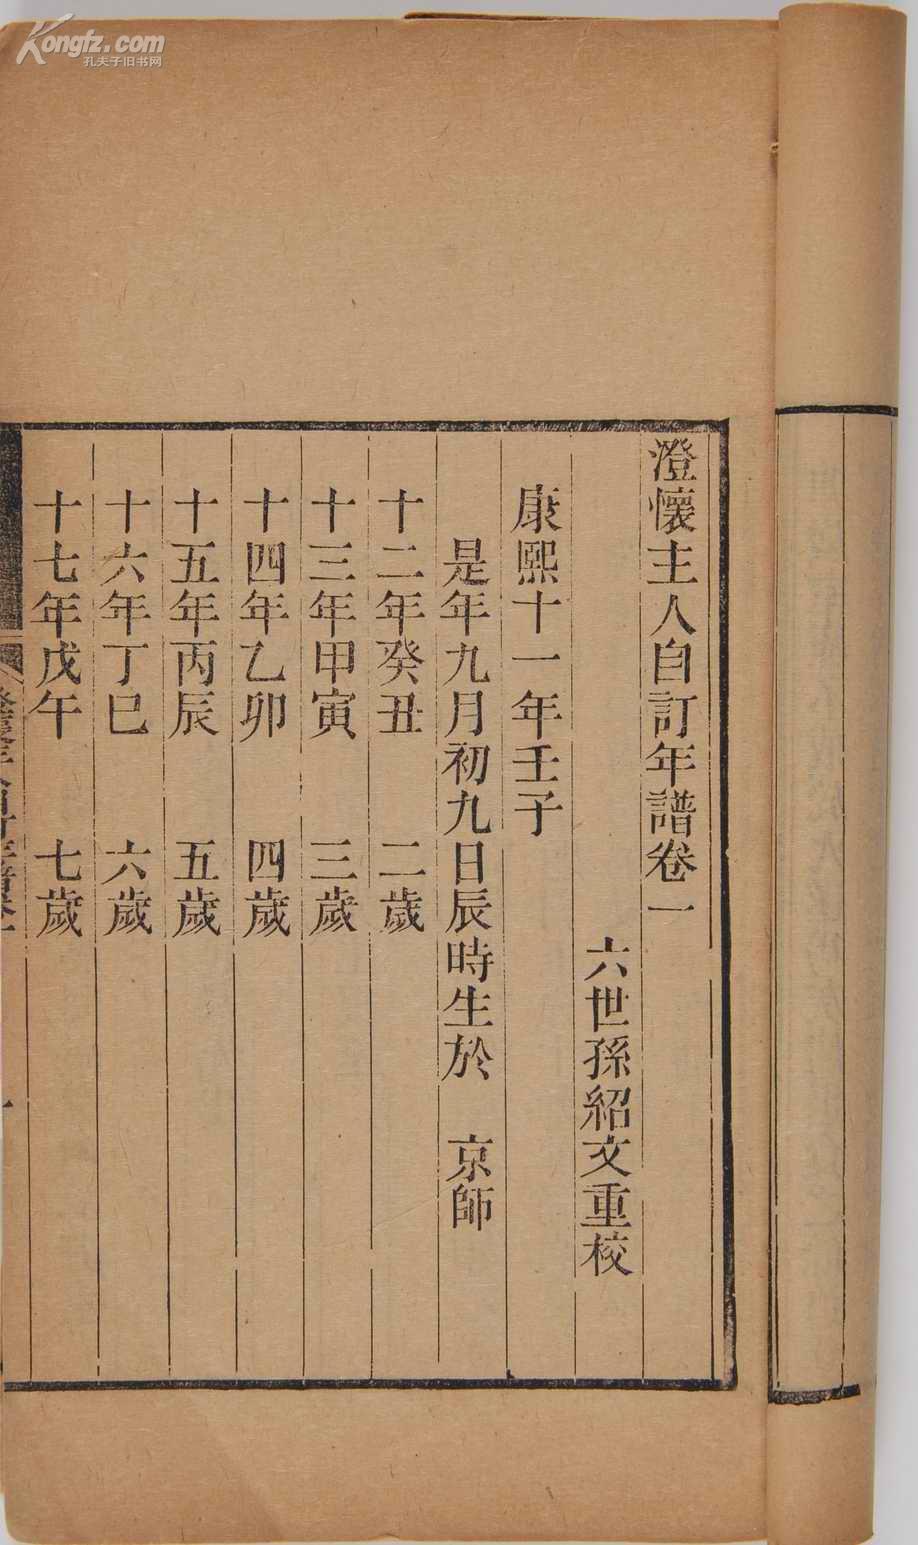 Kongfz.com
孔夫子旧书网
澄懷主人自訂年譜卷一
六世孫紹文重校
康熙十一年壬子
是年九月初九日辰時生於 京師
十二年癸丑 二歲
十三年甲寅 三歲
十四年乙卯 四歲
十五年丙辰 五歲
十六年丁巳 六歲
十七年戊午 七歲